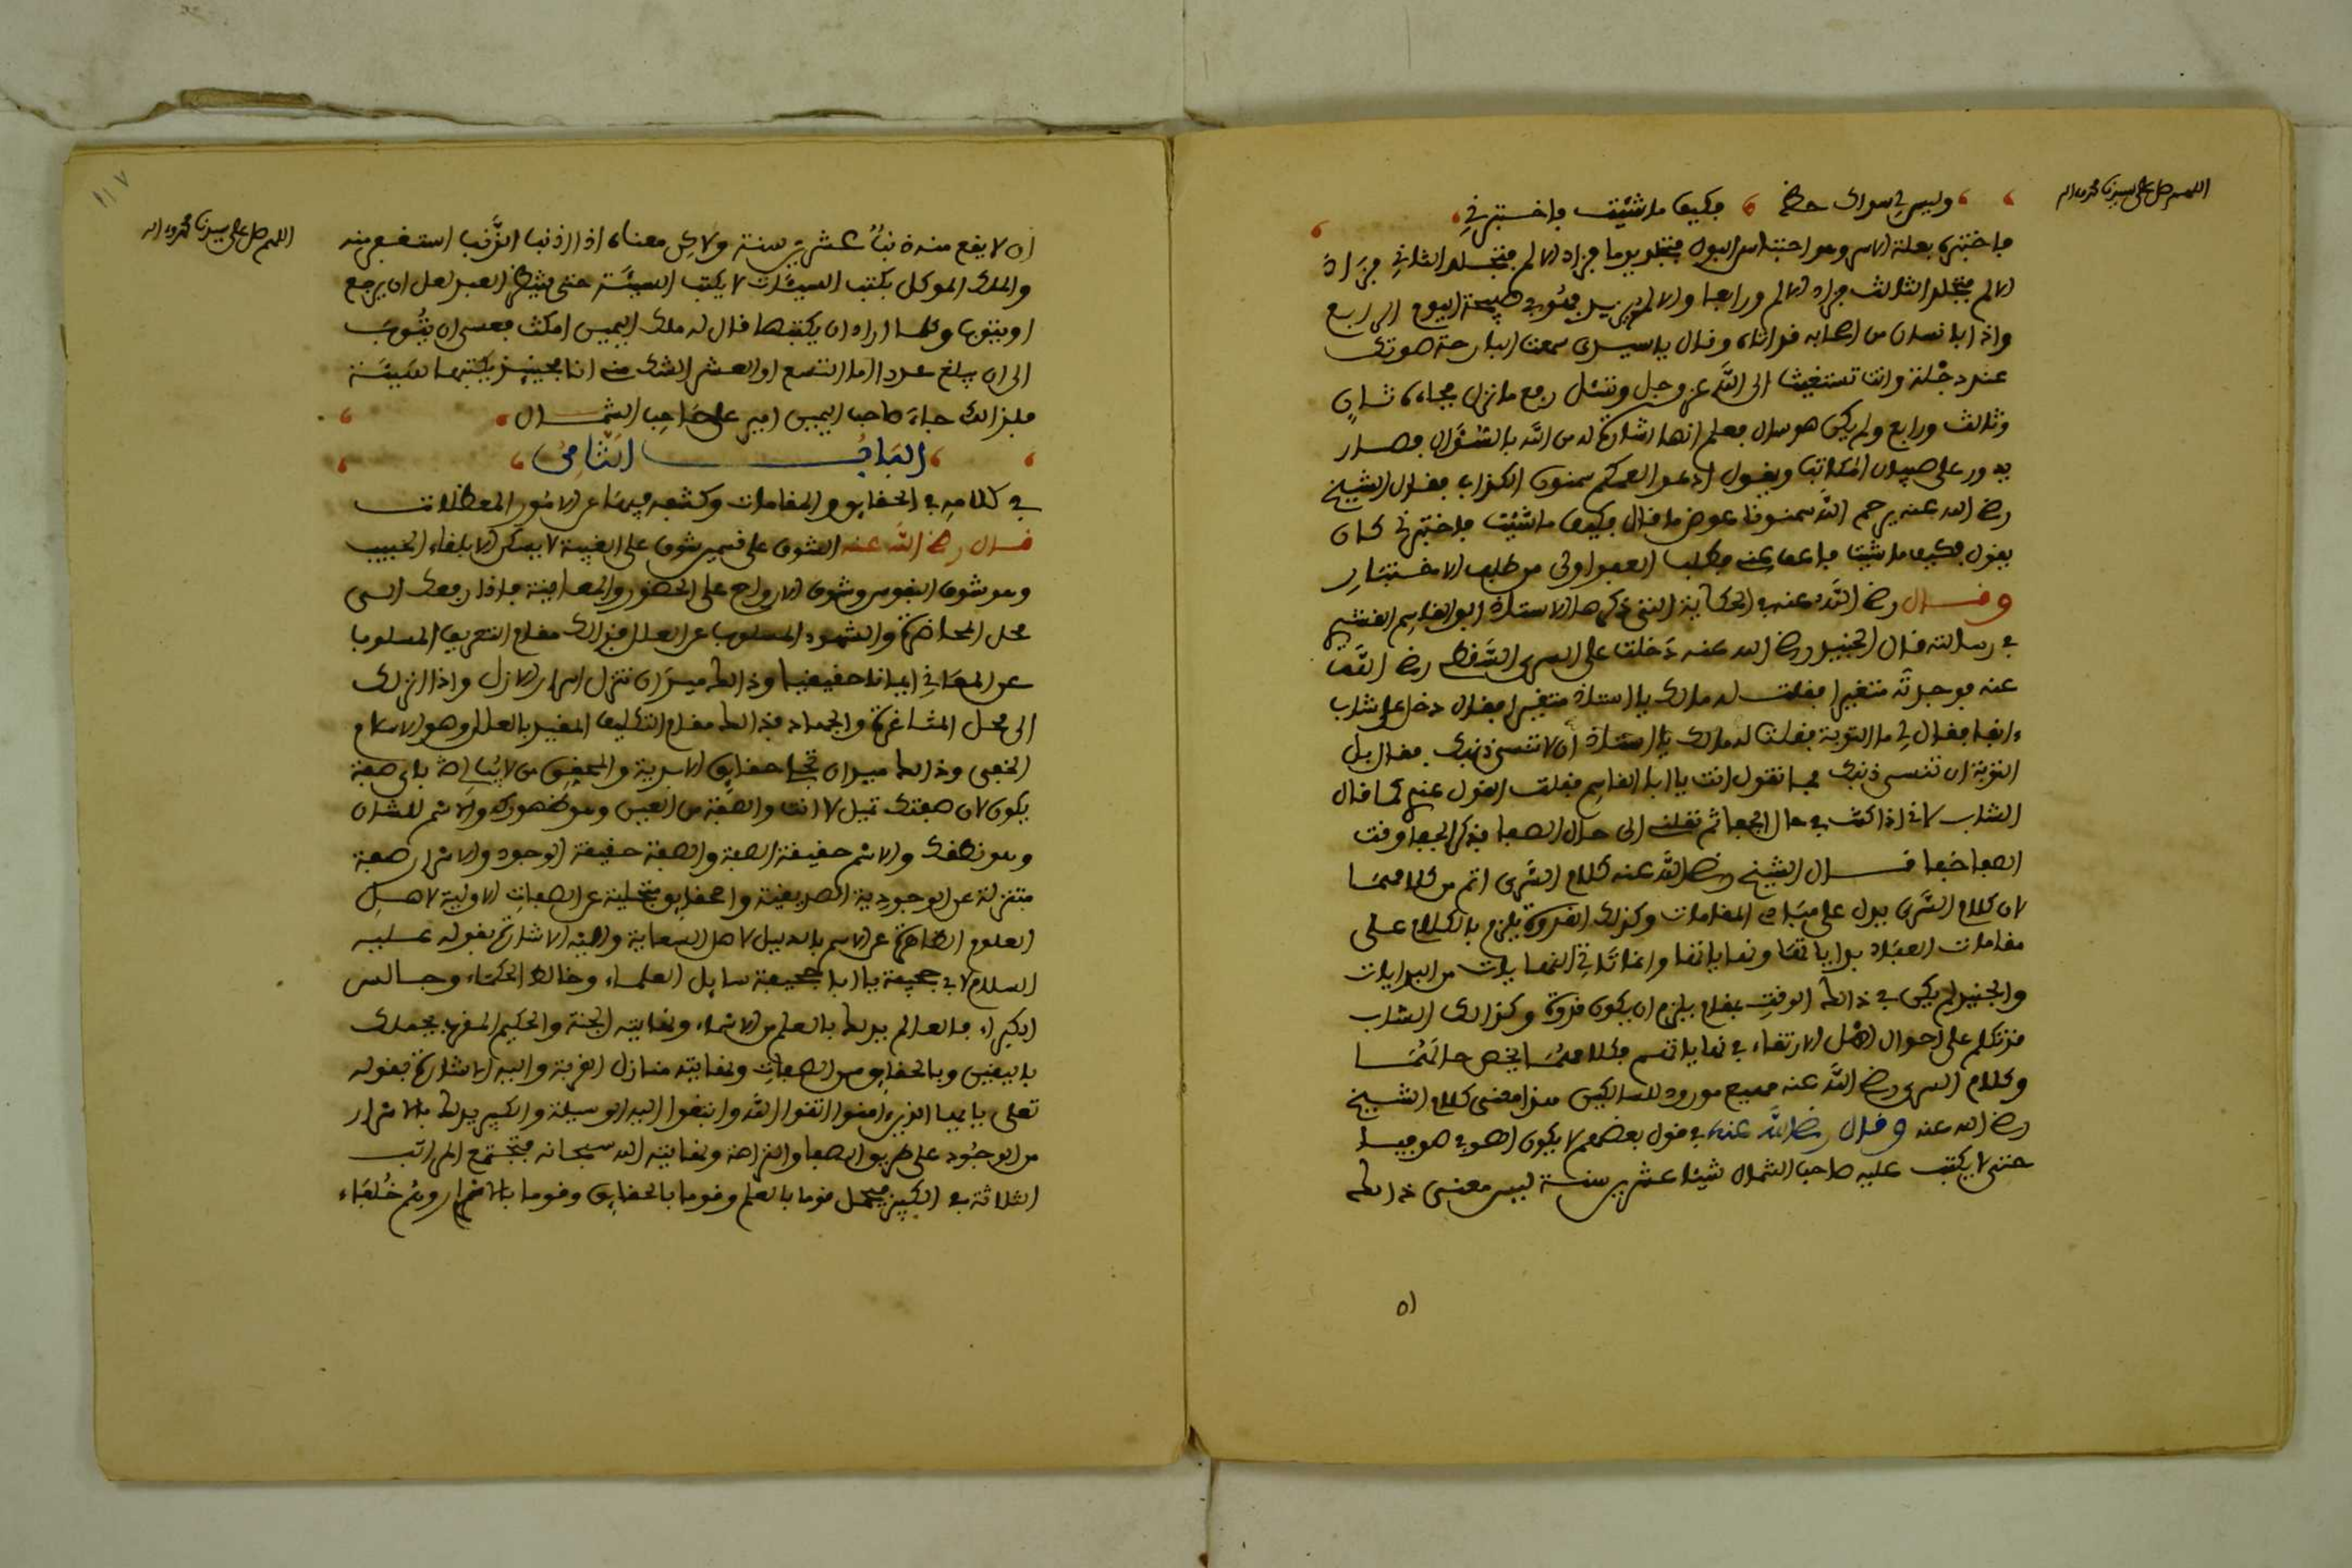 اللهم صل على سيدنا محمد واله
وليس لي في سواك حظ فكيف ما شئت فاختبرني
فاختبر بعلة الاسر وهو احتباس البول فتجلد يوما فزاد الالم فتجلد الثاني فزاد
الالم فتجلد الثالث فزاد الالم ورابعا والالم يزيد صبيحة اليوم الرابع
واذا بانسان من اصحابه قد اتاه وقال يا سيدي سمعنا البارحة صوتك
عند دجلة وانت تستغيث الى الله عز وجل وتسئل رفع ما نزل فجاءه ثان
وثالث ورابع ولم يكن هو سال فعلم انها اشارة له من الله بالسؤال فصار
يدور على صبيان المكاتب ويقول ادعوا لعمكم سمنون الكذاب فقال الشيخ
رضي الله عنه يرحم الله سمنونا عوض ما قال فكيف ما شئت فاختبرني كان
يقول فكيف ما شئت فاعف عني فطلب العفو اولى من طلب الاختبار
وقال رضي الله عنه في الحكاية التي ذكرها الاستاذ ابو القاسم القشيري
في رسالته قال الجنيد رضي الله عنه دخلت على السري السقطي رضي الله
عنه فوجدته متغيرا فقلت له مالك يا استاذ متغيرا فقال دخل علي شاب
ءانفا فقال لي ما التوبة فقلت له يا استاذ أن لا تنسى ذنبك فقال بل
التوبة ان تنسى ذنبك فما تقول انت يا ابا القاسم فقلت القول عندي كما قال
الشاب لاني اذا كنت في حال الجفا ثم نقلت الى حال الصفا فذكر الجفا وقت
الصفا جفا قال الشيخ رضي الله عنه كلام السري اتم من كلامهما
لان كلام السري يدل على مبادي المقامات وكذلك القدوة يلزم بالكلام على
مقامات العباد بداياتها ونهاياتها وانما تاتي النهايات من البدايات
والجنيد لم يكن في ذالك الوقت بمقام يلزم ان يكون قدوة وكذالك الشاب
فتكلم على احوال اهل الارتقاء في نهاياتهم فكلامهما يخص حالتهما
وكلام السري رضي الله عنه مهيع مورود للسالكين هذا معنى كلام الشيخ
رضي الله عنه وقال رضي الله عنه في قول بعضهم لا يكون الصوفي صوفيا
حتى لا يكتب عليه صاحب الشمال شيئا عشرين سنة ليس معنى ذالك
٥١
١١٧
اللهم صل على سيدنا محمد واله
ان لا يقع منه ذنب عشرين سنة ولاكن معناه اذا اذنب الذنب استغفر منه
والملك الموكل بكتب السيئات لا يكتب السيئة حتى ينتظر العبد لعل ان يرجع
او يتوب وكلما اراد ان يكتبها قال له ملك اليمين امكث فعسى ان يتوب
الى ان يبلغ عددا اما التسع او العشر الشك مني انا فحينئذ يكتبها سيئة
فلذالك جاء صاحب اليمين امير على صاحب الشمال
الباب الثامن
في كلامه في الحقايق والمقامات وكشفه فيهما عن الامور المعضلات
قال رضي الله عنه الشوق على قسمين شوق على الغيبة لا يسكن الا بلقاء الحبيب
وهو شوق النفوس وشوق الارواح على الحضور والمعاينة فاذا رفعك الى
محل المحاضرة والشهود المسلوب عن العلل فذالك مقام التعريف المسلوب
عن المعاني ايمانا حقيقيا وذالك ميدان تنزل اسرار الازل واذا انزلك
الى محل المشاغرة والجهاد فذالك مقام التكليف المقيد بالعلل وهو الاسلام
الحقيقي وذالك ميدان تجلي حقايق الابدية والمحقق من لا يبالي باي صفة
يكون لان صفتك تميل لا انت والصفة من العين وهو ظهورك والاسم للشان
وهو نطقك والاسم حقيقة الصفة والصفة حقيقة الوجود والاسرار صفة
متنزلة عن الوجودية الصديقية والحقايق متجلية عن الصفات الاولية لاهل
العلوم الظاهرة عن الاسم بالدليل لاهل السعاية واليه الاشارة بقوله عليه
السلام لابي جحيفة يا ابا جحيفة سايل العلماء وخالط الحكماء وجالس
الكبراء فالعالم يدلك بالعلم من الاسماء ونهايته الجنة والحكيم المقرب يحملك
باليقين وبالحقايق من الصفات ونهايته منازل القربة واليه الاشارة بقوله
تعلى يايها الذين ءامنوا اتقوا الله وابتغوا اليه الوسيلة والكبير يدلك بالاسرار
من الوجود على طريق الصفا والنزاهة ونهايته الله سبحانه فتجتمع المراتب
الثلاثة في الكبير فيحمل قوما بالعلم وقوما بالحقايق وقوما بالاسرار وهم خلفاء